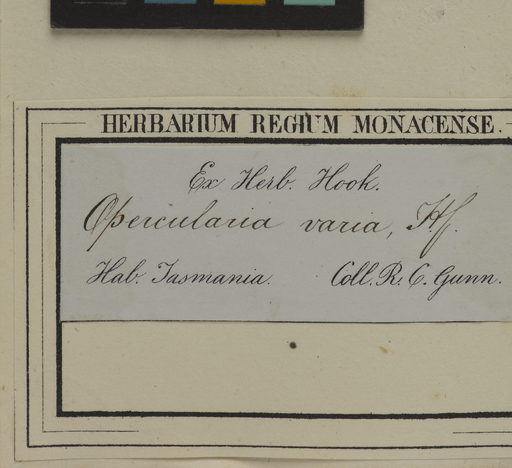 HERBARIUM REGIUM MONACENSE.
Ex Herb. Hook.
Opercularia varia, Hf.
Hab. Tasmania. Coll. R. C. Gunn.